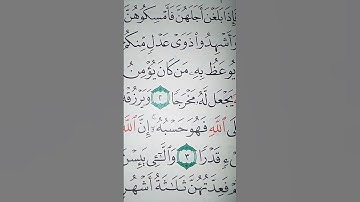 فَإِذَا بَلَغْنَ أَجَلَهُنَّ فَأَمْسِكُوهُنَّ
وَأَشْهِدُوا۟ ذَوَىْ عَدْلٍ مِّنكُمْ
يُوعَظُ بِهِۦ مَن كَانَ يُؤْمِنُ
يَجْعَل لَّهُۥ مَخْرَجًا ٢ وَيَرْزُقْهُ
ٱللَّهِ فَهُوَ حَسْبُهُۥٓ ۚ إِنَّ ٱللَّهَ
قَدْرًا ٣ وَٱلَّـٰٓـِٔى يَئِسْنَ
فَعِدَّتُهُنَّ ثَلَـٰثَةُ أَشْهُرٍ